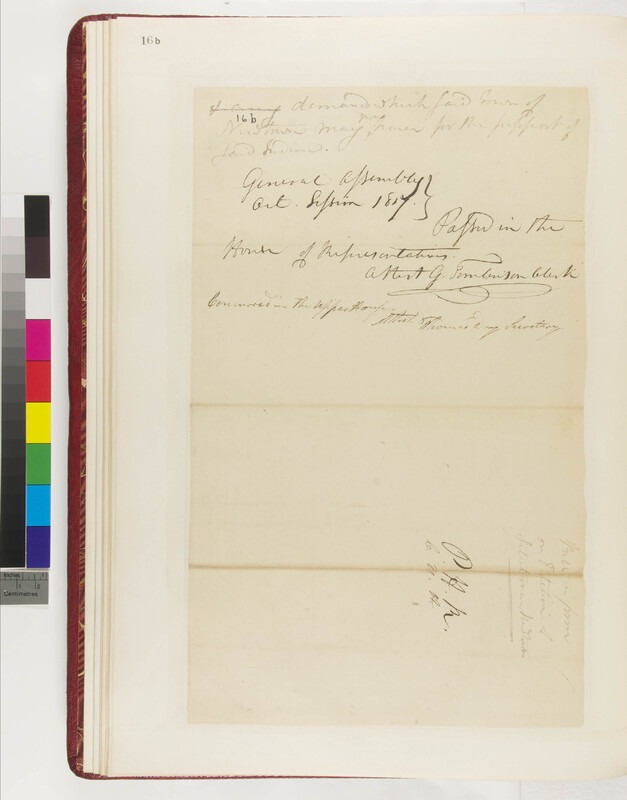 16b
demands which said Town of
16b
Newtown may have for the support of
said Indian.
General Assembly
Oct. Session 1817.
Passed in the
House of Representatives.
Attest G. Tomlinson Clerk
Concurred in the Upper House
Attest Thomas Day Secretary
P. H. R.
C. U. H.
on Petition of
inches
1 2
centimetres